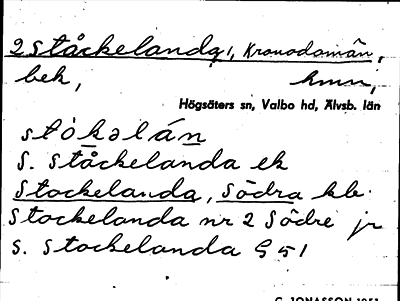 2 Ståckelanda, Kronodomän,
bek, hmn,
Högsäters sn, Valbo hd, Älvsb. län
stòkəlán
S. Ståckelanda ek
Stockelanda, Södra kb.
Stockelanda nr 2 Södre jr
S. Stockelanda G 51
C. JONASSON 1951